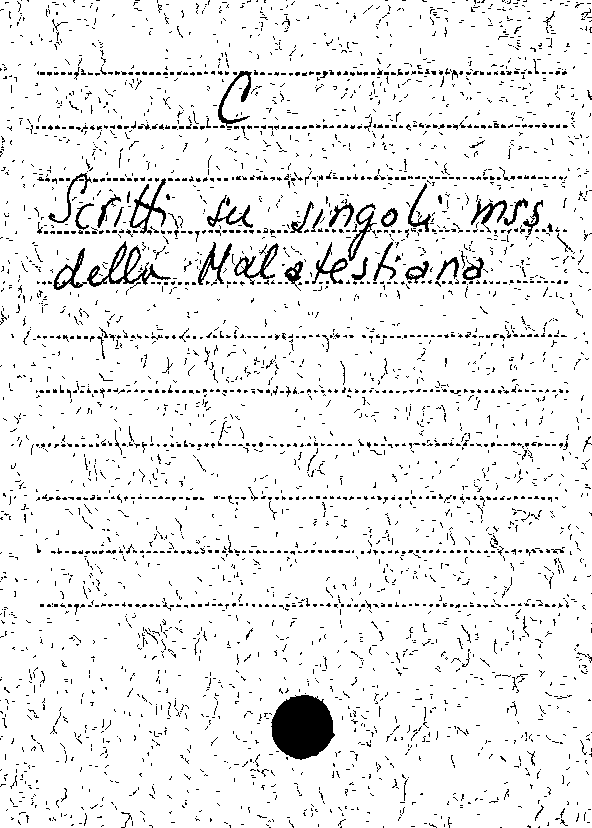 C
Scritti su singoli mss.
della Malatestiana